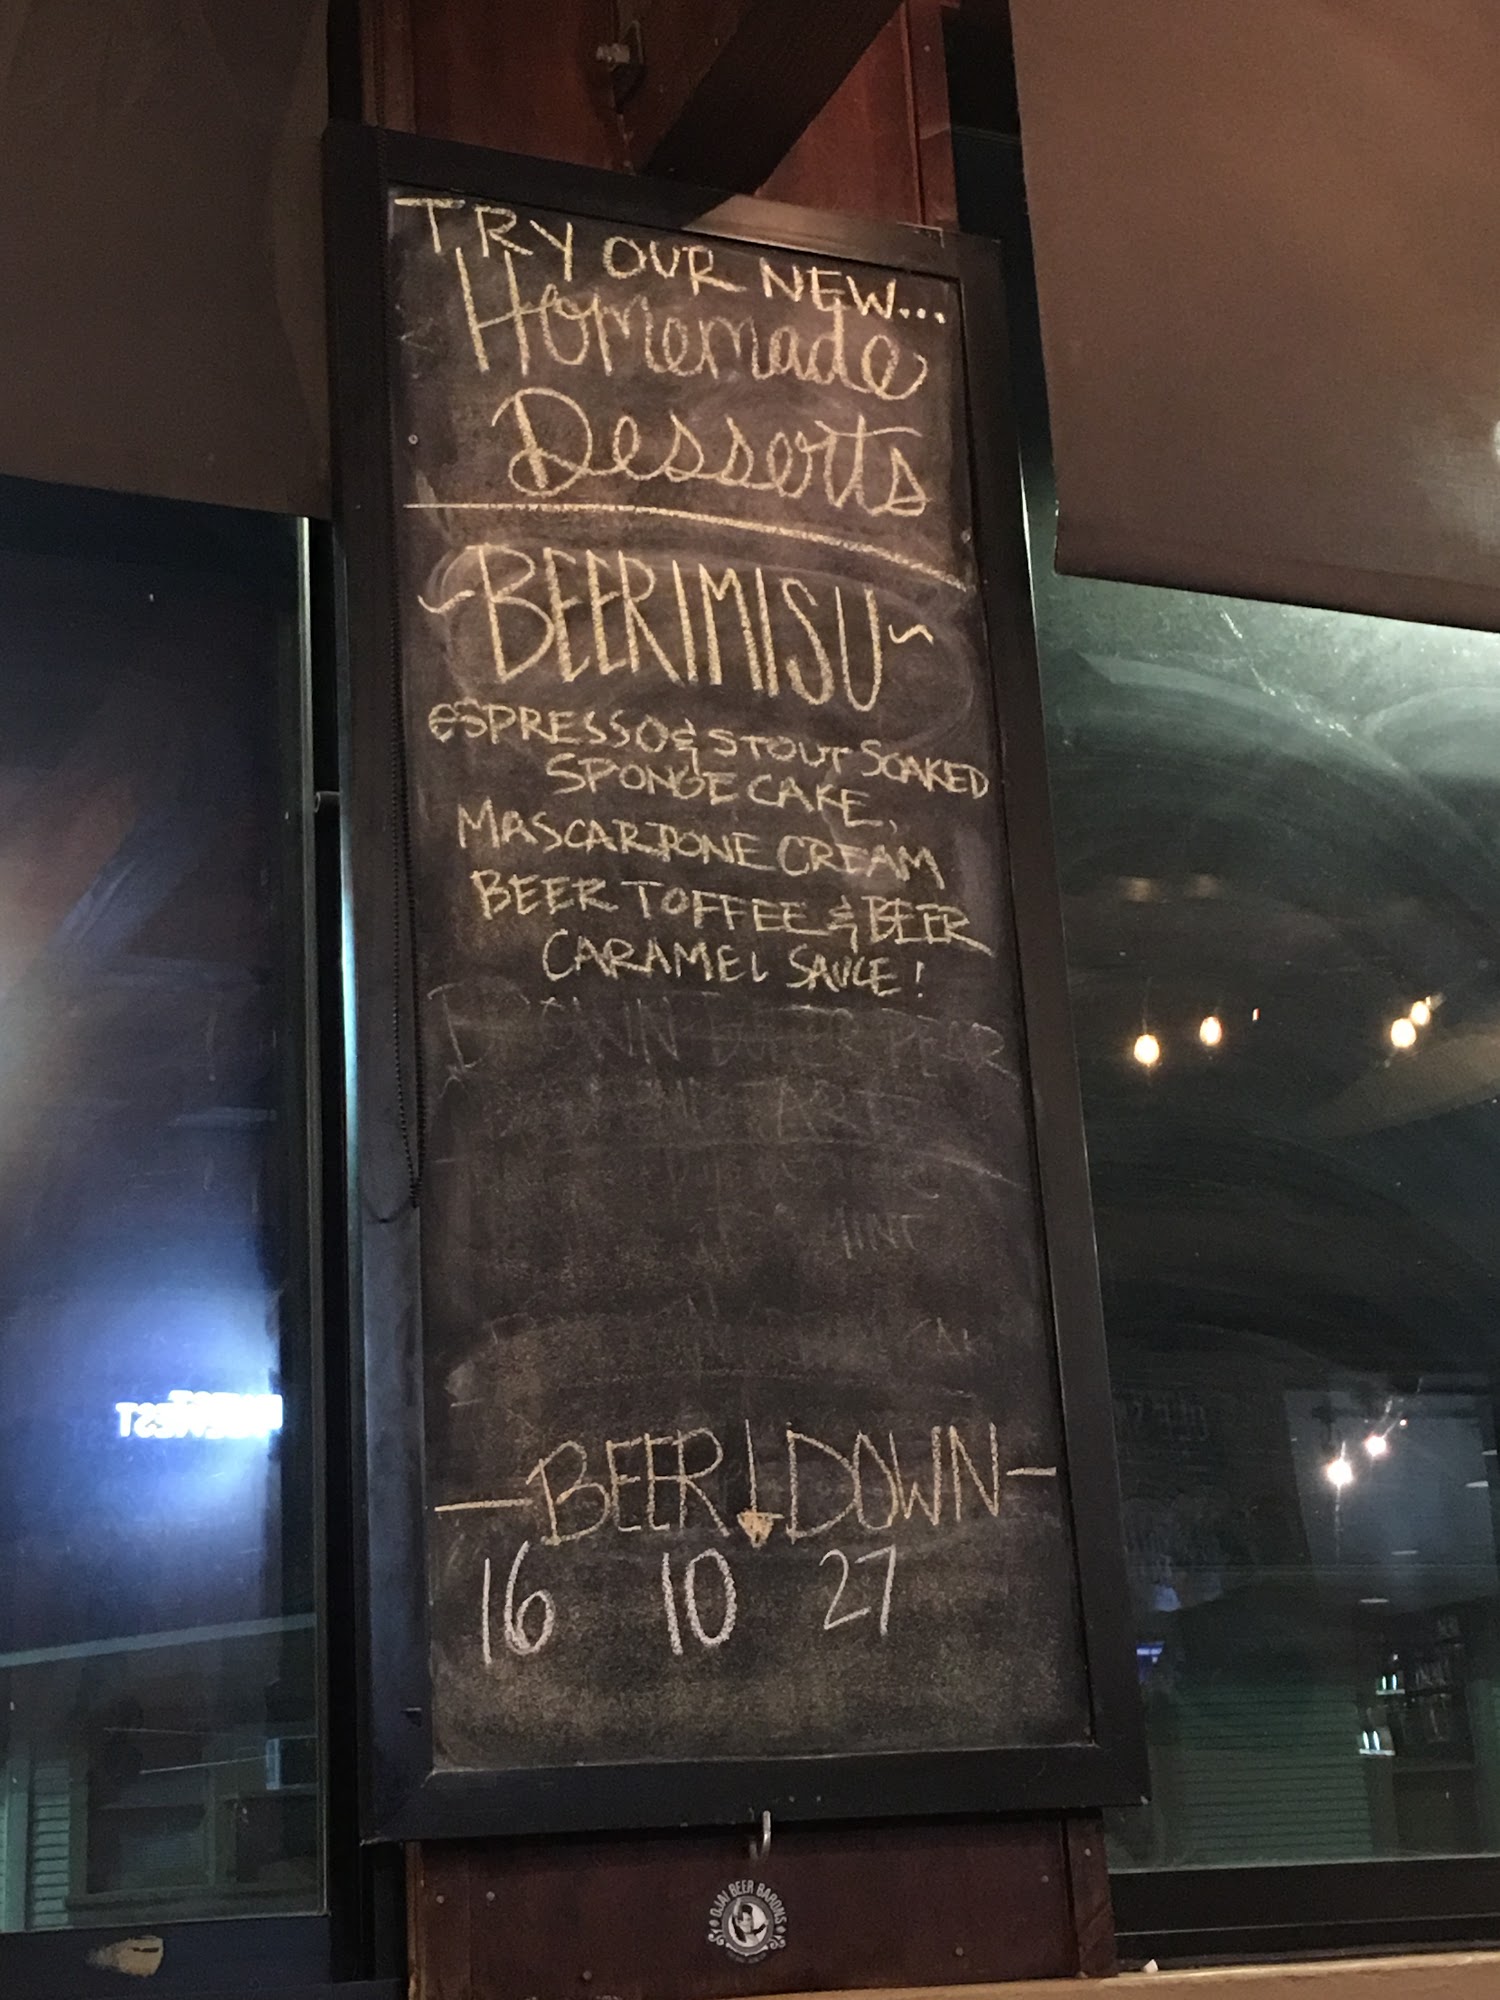 TRY OUR NEW...
Homemade
Desserts
~BEERIMISU~
eSPRESSO & STOUT SOAKED
SPONGE CAKE,
MASCARPONE CREAM
BEER TOFFEE & BEER
CARAMEL SAUCE!
MINT
—BEER ↓ DOWN—
16 10 27
OJAI BEER BARONS